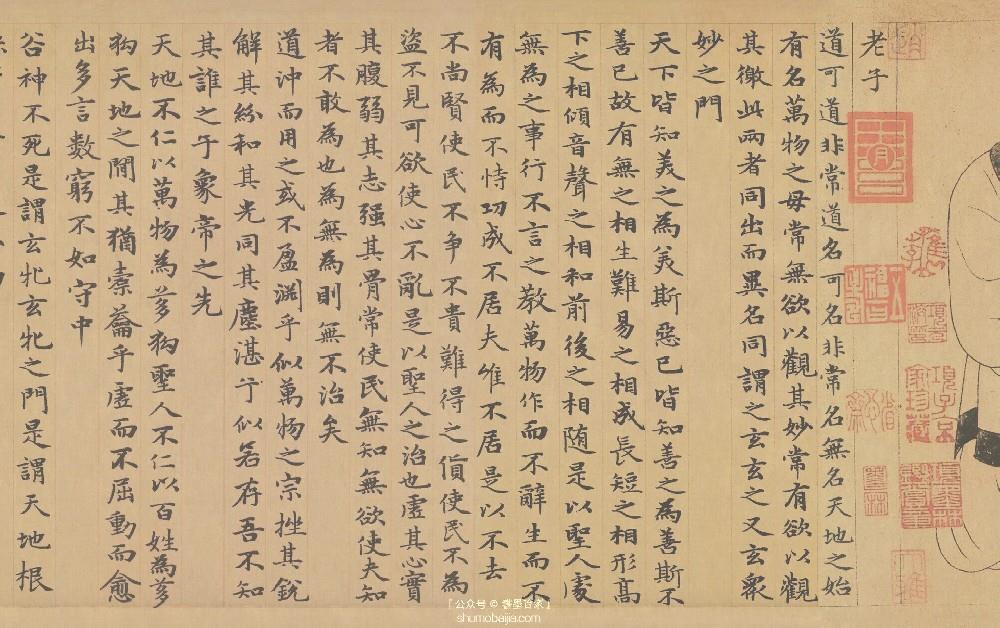 老子
道可道非常道名可名非常名無名天地之始
有名萬物之母常無欲以觀其妙常有欲以觀
其徼此兩者同出而異名同謂之玄玄之又玄衆
妙之門
天下皆知美之為美斯惡已皆知善之為善斯不
善已故有無之相生難易之相成長短之相形高
下之相傾音聲之相和前後之相随是以聖人處
無為之事行不言之教萬物作而不辭生而不
有為而不恃功成不居夫惟不居是以不去
不尚賢使民不争不貴難得之貨使民不為
盜不見可欲使心不亂是以聖人之治也虛其心實
其腹弱其志强其骨常使民無知無欲使夫知
者不敢為也為無為則無不治矣
道沖而用之或不盈淵乎似萬物之宗挫其銳
解其紛和其光同其塵湛乎似若存吾不知
其誰之子象帝之先
天地不仁以萬物為芻狗聖人不仁以百姓為芻
狗天地之間其猶橐籥乎虛而不屈動而愈
出多言數窮不如守中
谷神不死是謂玄牝玄牝之門是謂天地根
「公众号 © 書墨百家」
shumobaijia.com